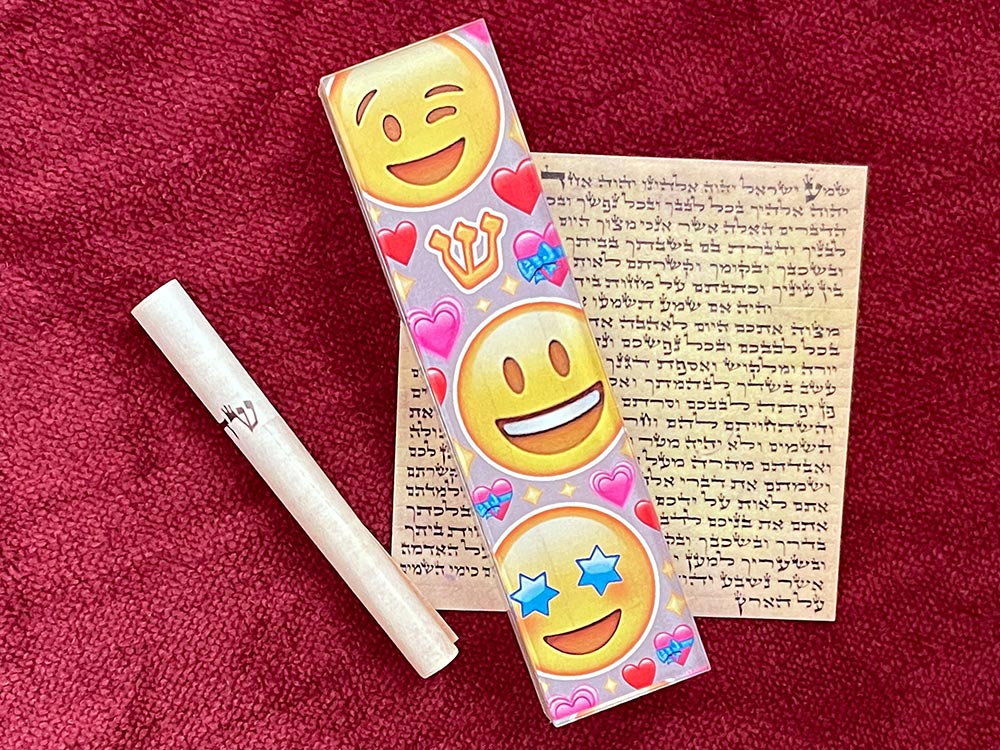 ש
ש
שמע ישראל יהוה אלהינו יהוה אחד
יהוה אלהיך בכל לבבך ובכל נפשך ובכ
הדברים האלה אשר אנכי מצוך היום
לבניך ודברת בם בשבתך בביתך
ובשכבך ובקומך וקשרתם לאות
בין עיניך וכתבתם על מזזות
והיה אם שמע תשמעו
מצוה אתכם היום לאהבה
בכל לבבכם ובכל נפשכם
יורה ומלקוש ואספת דגנך
עשב בשדך לבהמתך
פן יפתה לבבכם וסרתם
והשתחויתם להם את
השמים ולא יהיה מטר
ואבדתם מהרה מעל לכם
ושמתם את דברי וקשרתם
אתם לאות על ידכם ולמדתם
אתם את בניכם ובלכתך
בדרך ובשכבך ביתך
ובשעריך למען על האדמה
אשר נשבע כימי השמים
על הארץ